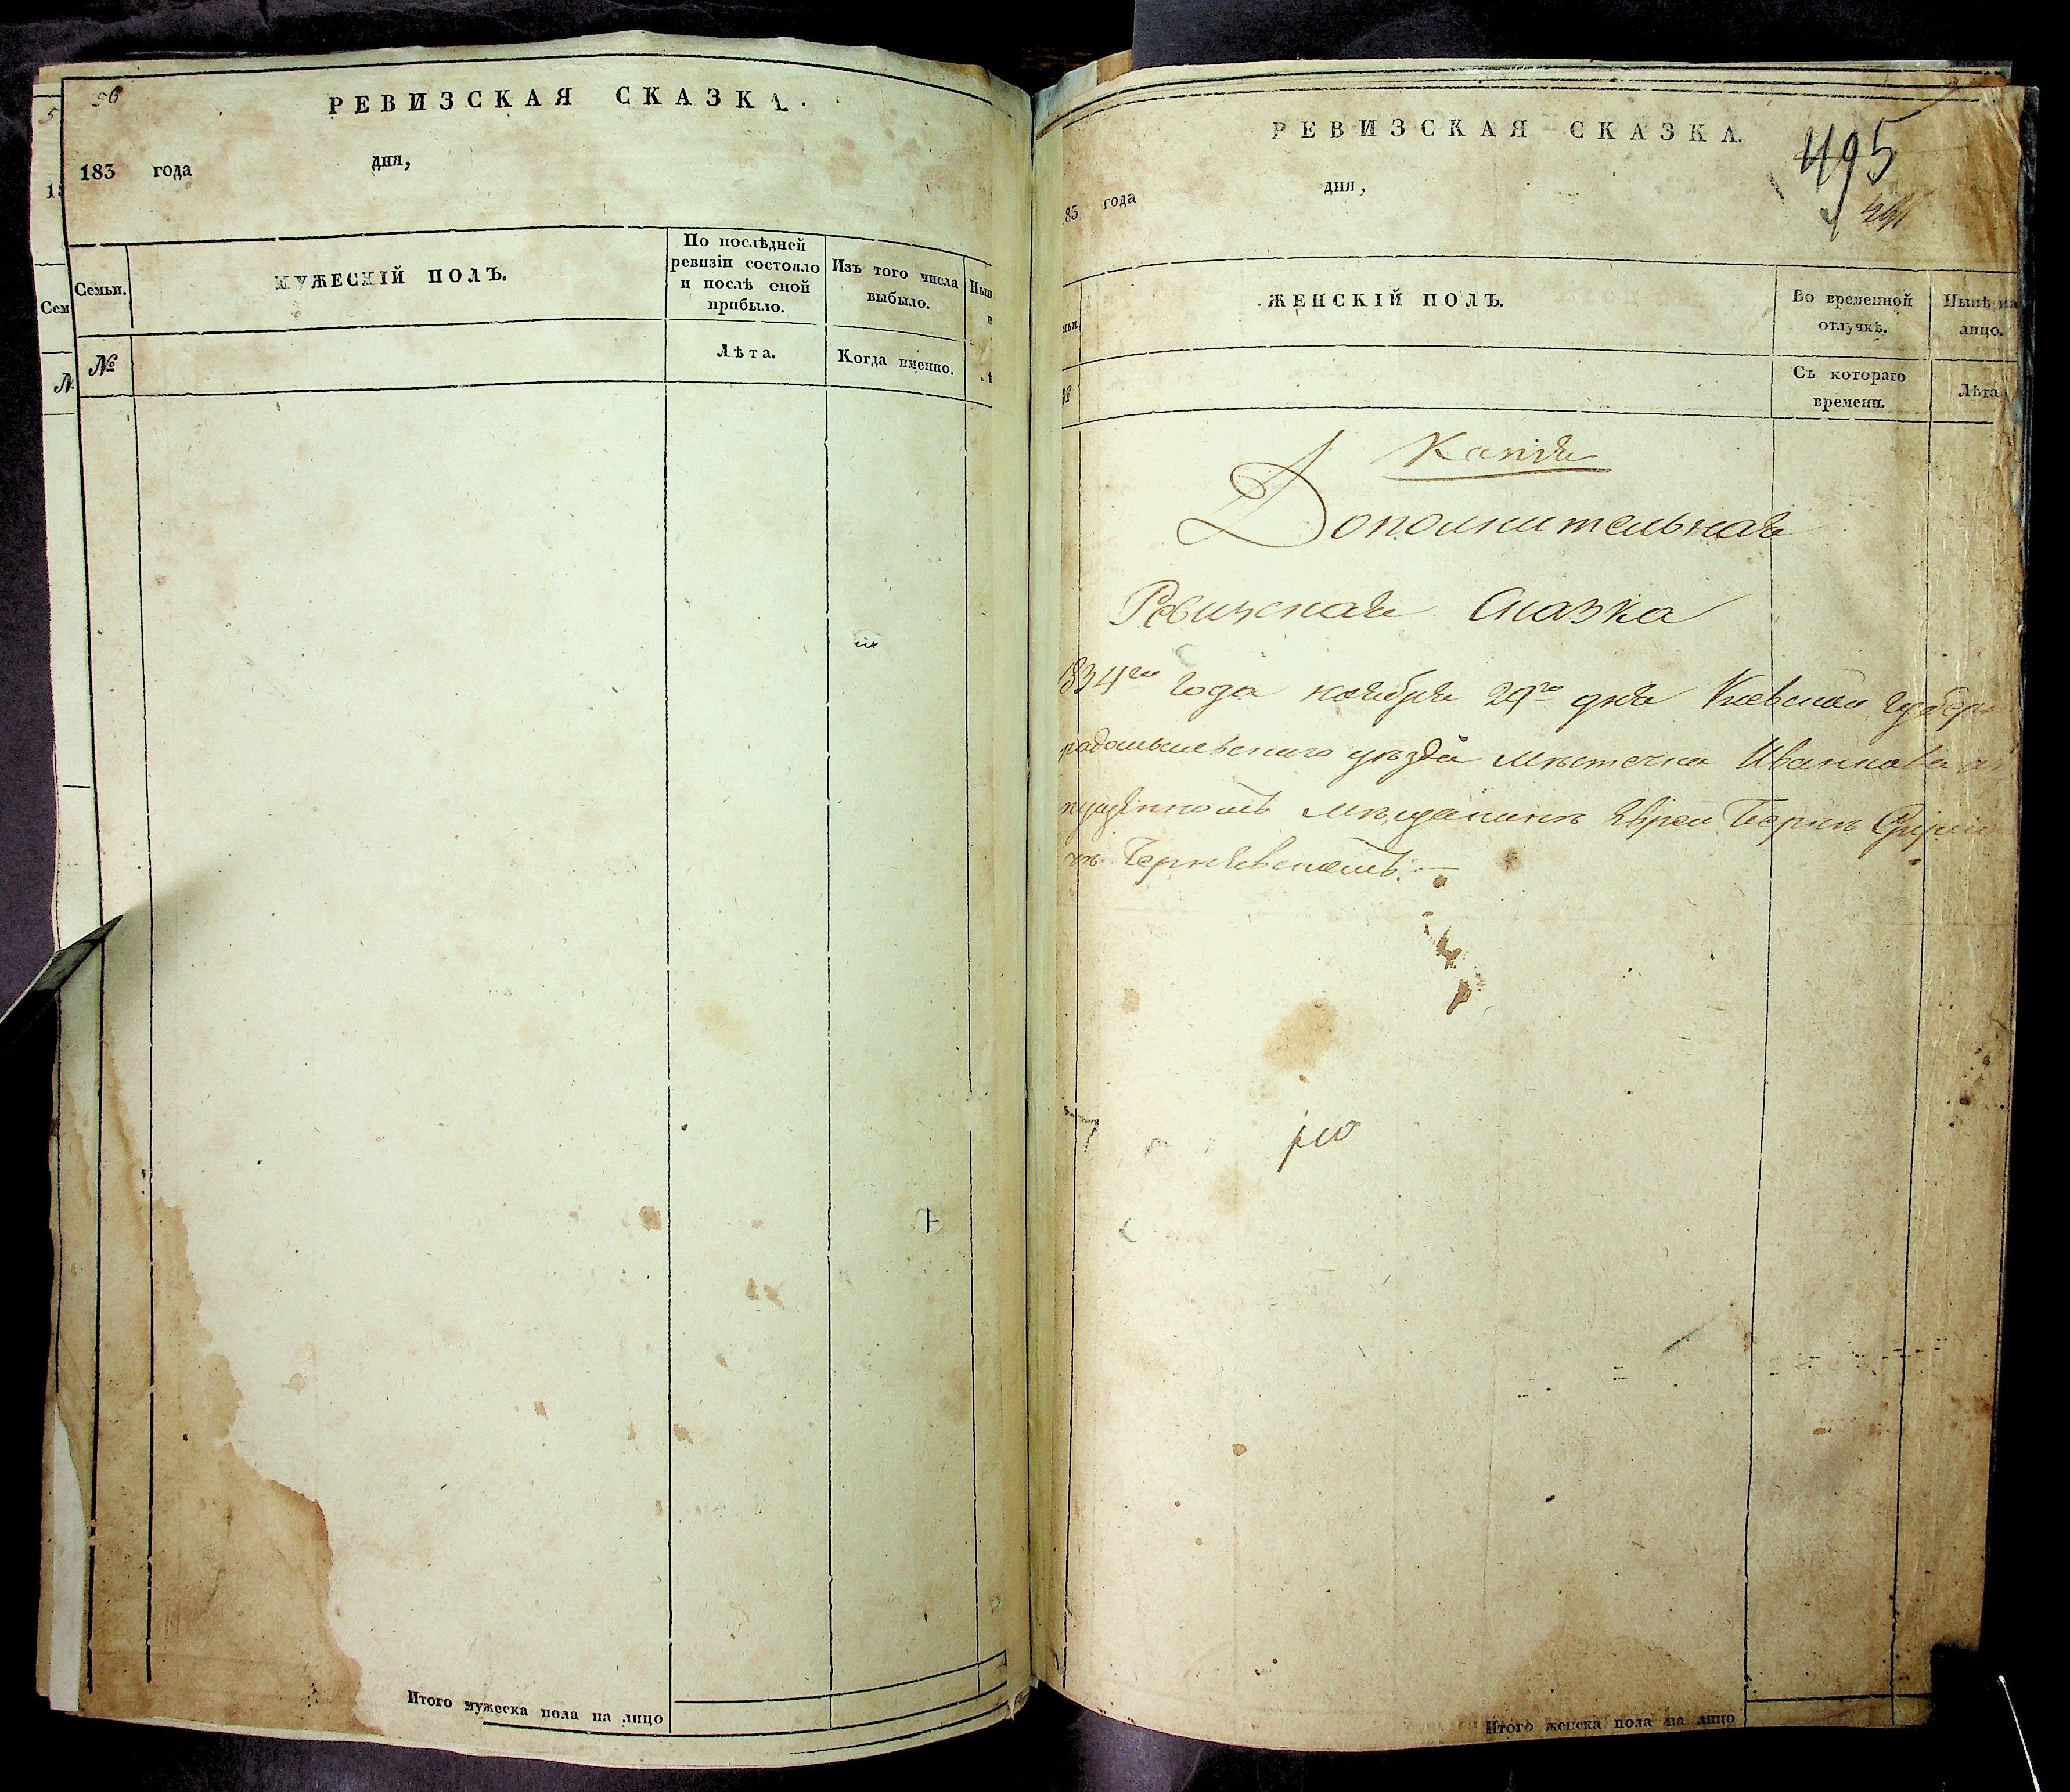 56
РЕВИЗСКАЯ СКАЗКА.
183 года дня,
Семьи.
МУЖЕСКІЙ ПОЛЪ.
По послѣдней ревизіи состояло и послѣ оной прибыло.
Изъ того числа выбыло.
№
Лѣта.
Когда именно.
Итого мужеска пола на лицо
РЕВИЗСКАЯ СКАЗКА.
495
83 года дня,
ЖЕНСКІЙ ПОЛЪ.
Во временной отлучкѣ.
Нынѣ на лицо.
№
Съ котораго времени.
Лѣта
Копія
Дополнительная
Ревизская Сказка
834го года ноября 29го дня Киевской Губер
радомысльского уѣзда мѣстечка Иванкова
мѣщанинѣ Еврей Беркѣ
Итого женска пола на лицо